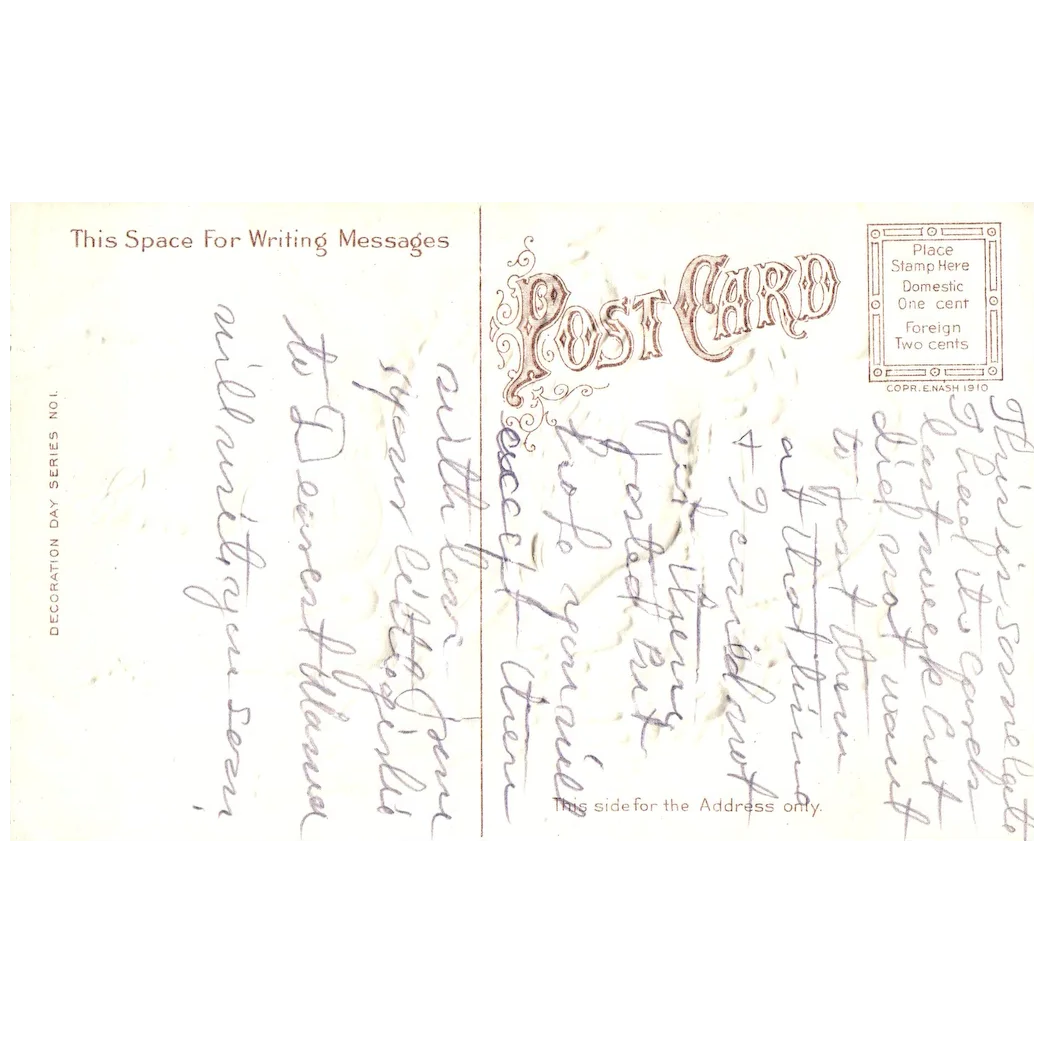 This Space For Writing Messages
POST CARD
Place
Stamp Here
Domestic
One cent
Foreign
Two cents
COPR. E. NASH 1910
DECORATION DAY SERIES NO. 1.
This side for the Address only.
This is some late
I had the cards
last week but
did not want
to post them
at that time
& I could not
get them
posted but
hope you will
except them
with love from
your little girlie
to Dearest Mama
will write you soon